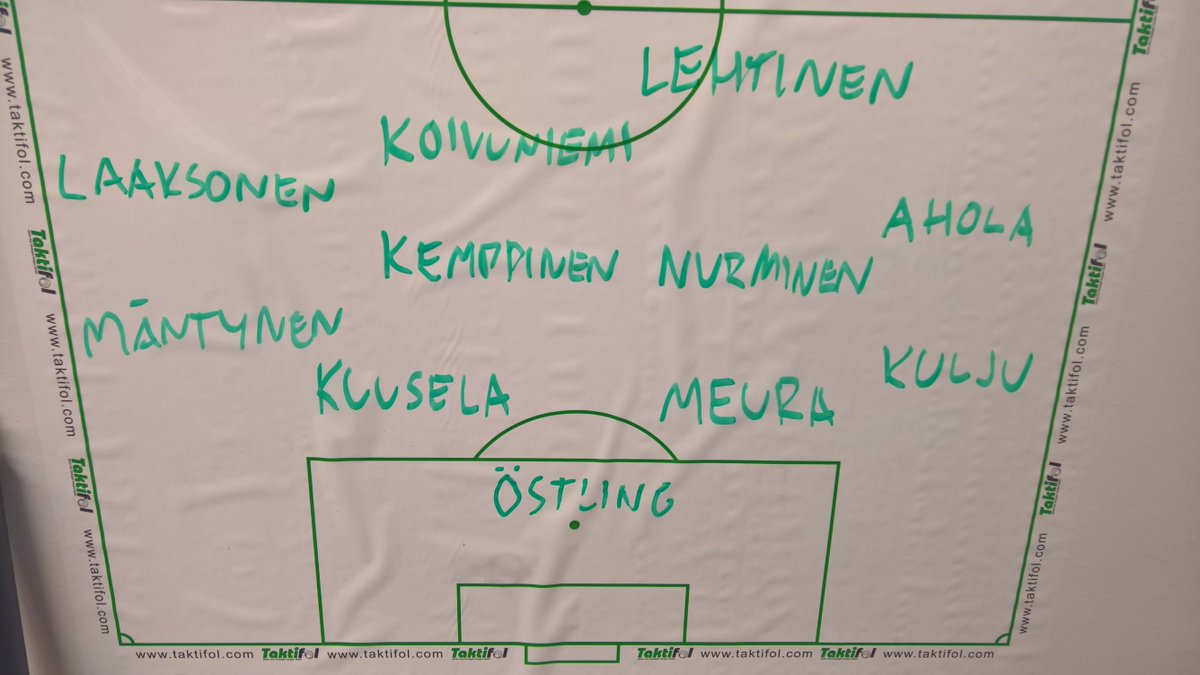 LEHTINEN
KOIVUNIEMI
LAAKSONEN
AHOLA
KEMPPINEN NURMINEN
MÄNTYNEN
KUUSELA MEURA KULJU
ÖSTLING
www.taktifol.com Taktifol www.taktifol.com Taktifol Taktifol www.taktifol.com Taktifol www.taktifol.com
www.taktifol.com
Taktifol
www.taktifol.com
Taktifol
www.taktifol.com
Taktifol
www.taktifol.com
Taktifol
www.taktifol.com
Taktifol
www.taktifol.com